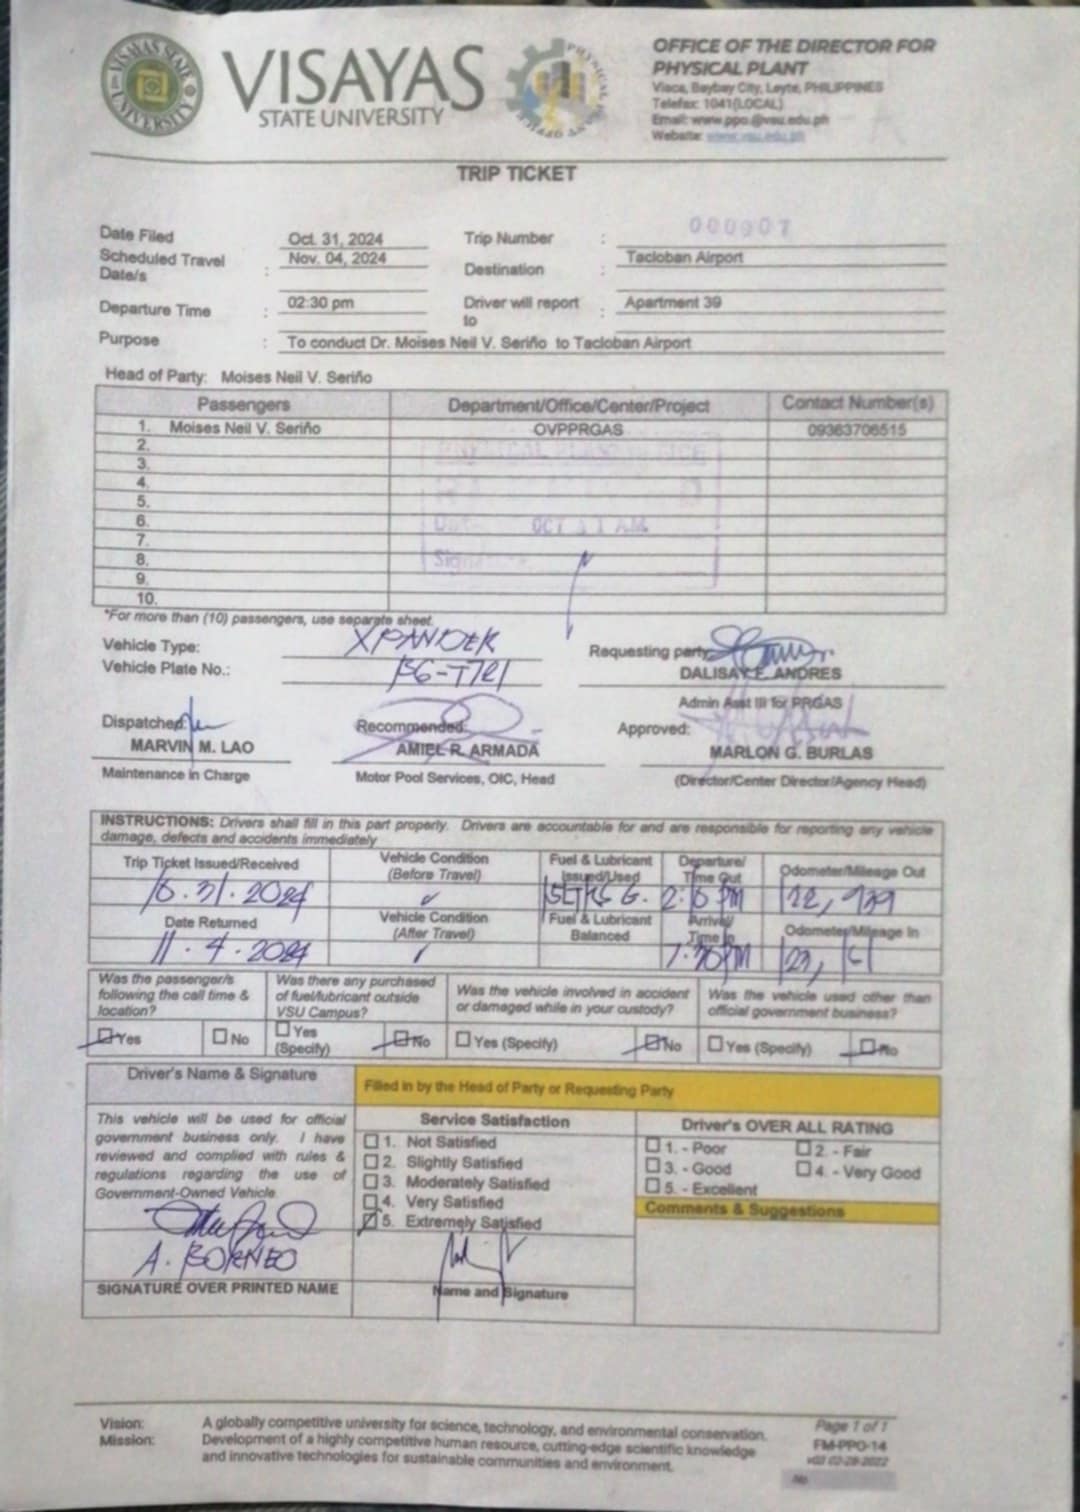 VISAYAS STATE UNIVERSITY
VISAYAS
STATE UNIVERSITY
OFFICE OF THE DIRECTOR FOR
PHYSICAL PLANT
Visca, Baybay City, Leyte, PHILIPPINES
Telefax: 1041(LOCAL)
Email: www.ppo.@vsu.edu.ph
Website: www.vsu.edu.ph
TRIP TICKET
Date Filed Oct. 31, 2024 Trip Number : 000907
Scheduled Travel Date/s : Nov. 04, 2024 Destination : Tacloban Airport
Departure Time : 02:30 pm Driver will report to : Apartment 39
Purpose : To conduct Dr. Moises Neil V. Seriño to Tacloban Airport
Head of Party: Moises Neil V. Seriño
Passengers Department/Office/Center/Project Contact Number(s)
1. Moises Neil V. Seriño OVPPRGAS 09363706515
2.
3.
4.
5.
6.
7.
8.
9.
10.
*For more than (10) passengers, use separate sheet.
Vehicle Type: XPANDER Requesting party:
Vehicle Plate No.: DALISAY E. ANDRES
Admin Asst III for PRGAS
Dispatched: Recommended: Approved:
MARVIN M. LAO AMIEL R. ARMADA MARLON G. BURLAS
Maintenance in Charge Motor Pool Services, OIC, Head (Director/Center Director/Agency Head)
INSTRUCTIONS: Drivers shall fill in this part properly. Drivers are accountable for and are responsible for reporting any vehicle
damage, defects and accidents immediately
Trip Ticket Issued/Received Vehicle Condition (Before Travel) Fuel & Lubricant Issued/Used Departure/ Time Out Odometer/Mileage Out
10.31.2024 ✓
Date Returned Vehicle Condition (After Travel) Fuel & Lubricant Balanced Arrival/ Time In Odometer/Mileage In
11.4.2024
Was the passenger/s following the call time & location? Was there any purchased of fuel/lubricant outside VSU Campus? Was the vehicle involved in accident or damaged while in your custody? Was the vehicle used other than official government business?
Yes No Yes (Specify) No Yes (Specify) No Yes (Specify) No
Driver's Name & Signature Filled in by the Head of Party or Requesting Party
This vehicle will be used for official
government business only. I have
reviewed and complied with rules &
regulations regarding the use of
Government-Owned Vehicle.
A. BORNEO
SIGNATURE OVER PRINTED NAME
Service Satisfaction
1. Not Satisfied
2. Slightly Satisfied
3. Moderately Satisfied
4. Very Satisfied
5. Extremely Satisfied
Name and Signature
Driver's OVER ALL RATING
1. - Poor 2. - Fair
3. - Good 4. - Very Good
5. - Excellent
Comments & Suggestions
Vision: A globally competitive university for science, technology, and environmental conservation.
Mission: Development of a highly competitive human resource, cutting-edge scientific knowledge
and innovative technologies for sustainable communities and environment.
Page 1 of 1
FM-PPO-14
v03 02-28-2022
No